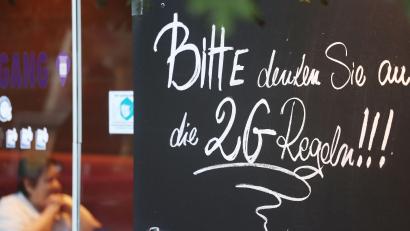 GANG
Bitte denken Sie an
die 2G Regeln!!!